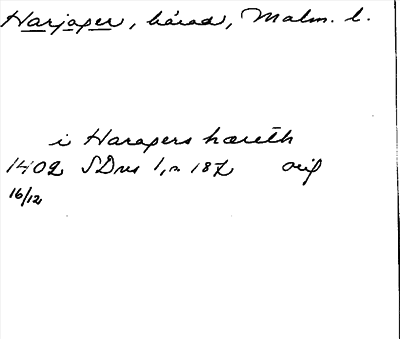 Harjager, härad, Malm. l.
i Haragers hæreth
1402 SDns 1, n 187 orig
16/12